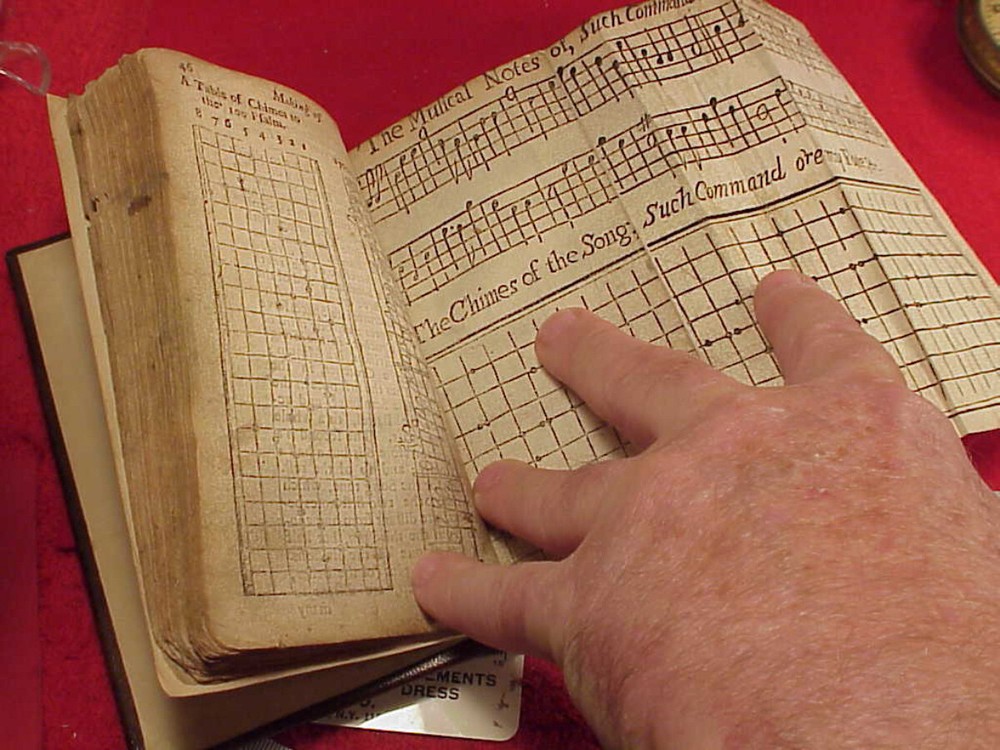 46
Making of
A Table of Chimes to
the 100 Psalm.
8 7 6 5 4 3 2 1
The Musical Notes of, Such Command
The Chimes of the Song; Such Command o're
my Fate.
EMENTS
DRESS
N.Y.